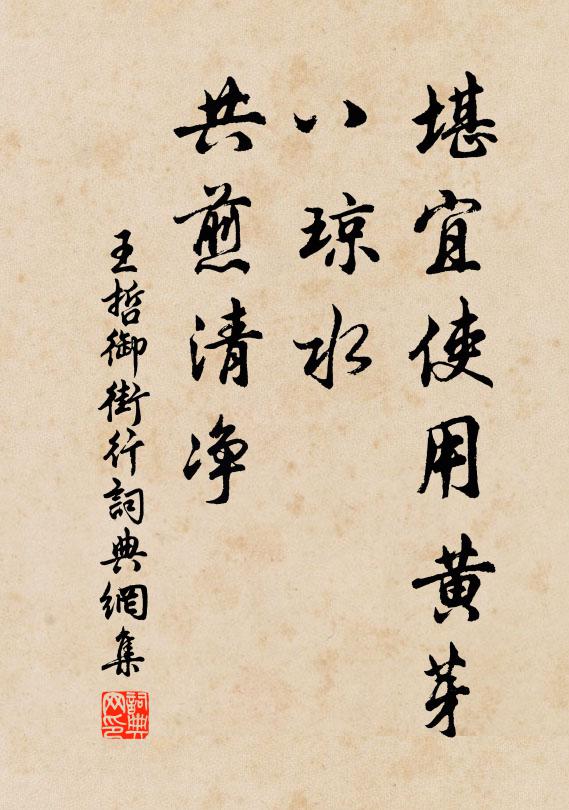 堪宜使用黄芽
八琼水
共煎清净
王哲御街行詞典網集
詞典网印